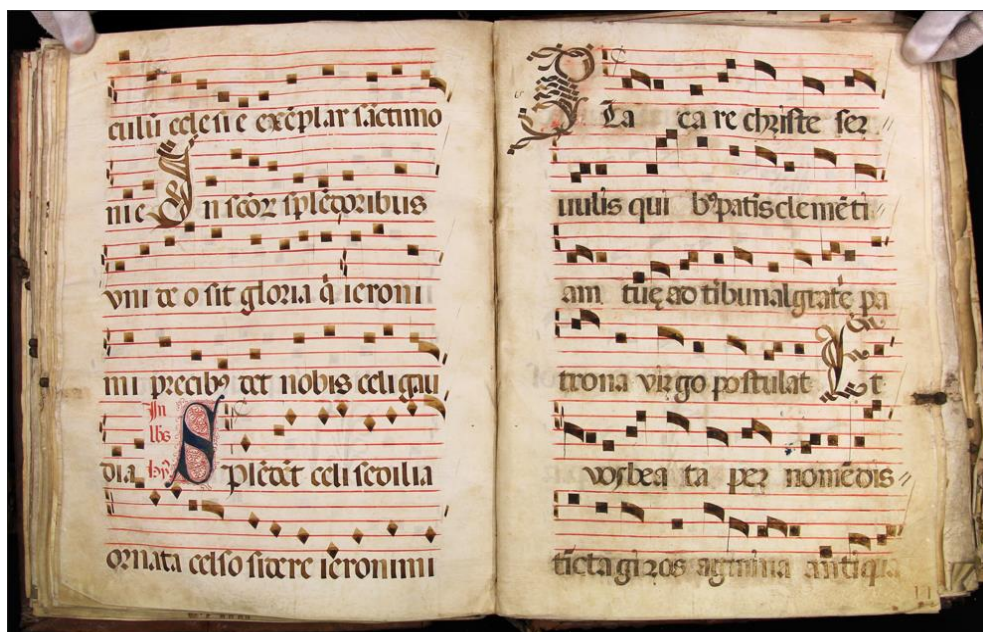 culū eclesie exēplar sāctimo
nie In scōꝝ splēdoribus
vni deo sit gloria q̄ ieroni
mi precibꝰ det nobis celi gau
In
lbs
dia Splēdēt celi sedilia
ornata celso sidere ieronimi
Placare christe ser
uulis qui bꝰ patis clemēti
am tuę ad tibunal gratē pa
trona virgo postulat Et
vos beata per nomē dis
tīcta giros agmina antiqua